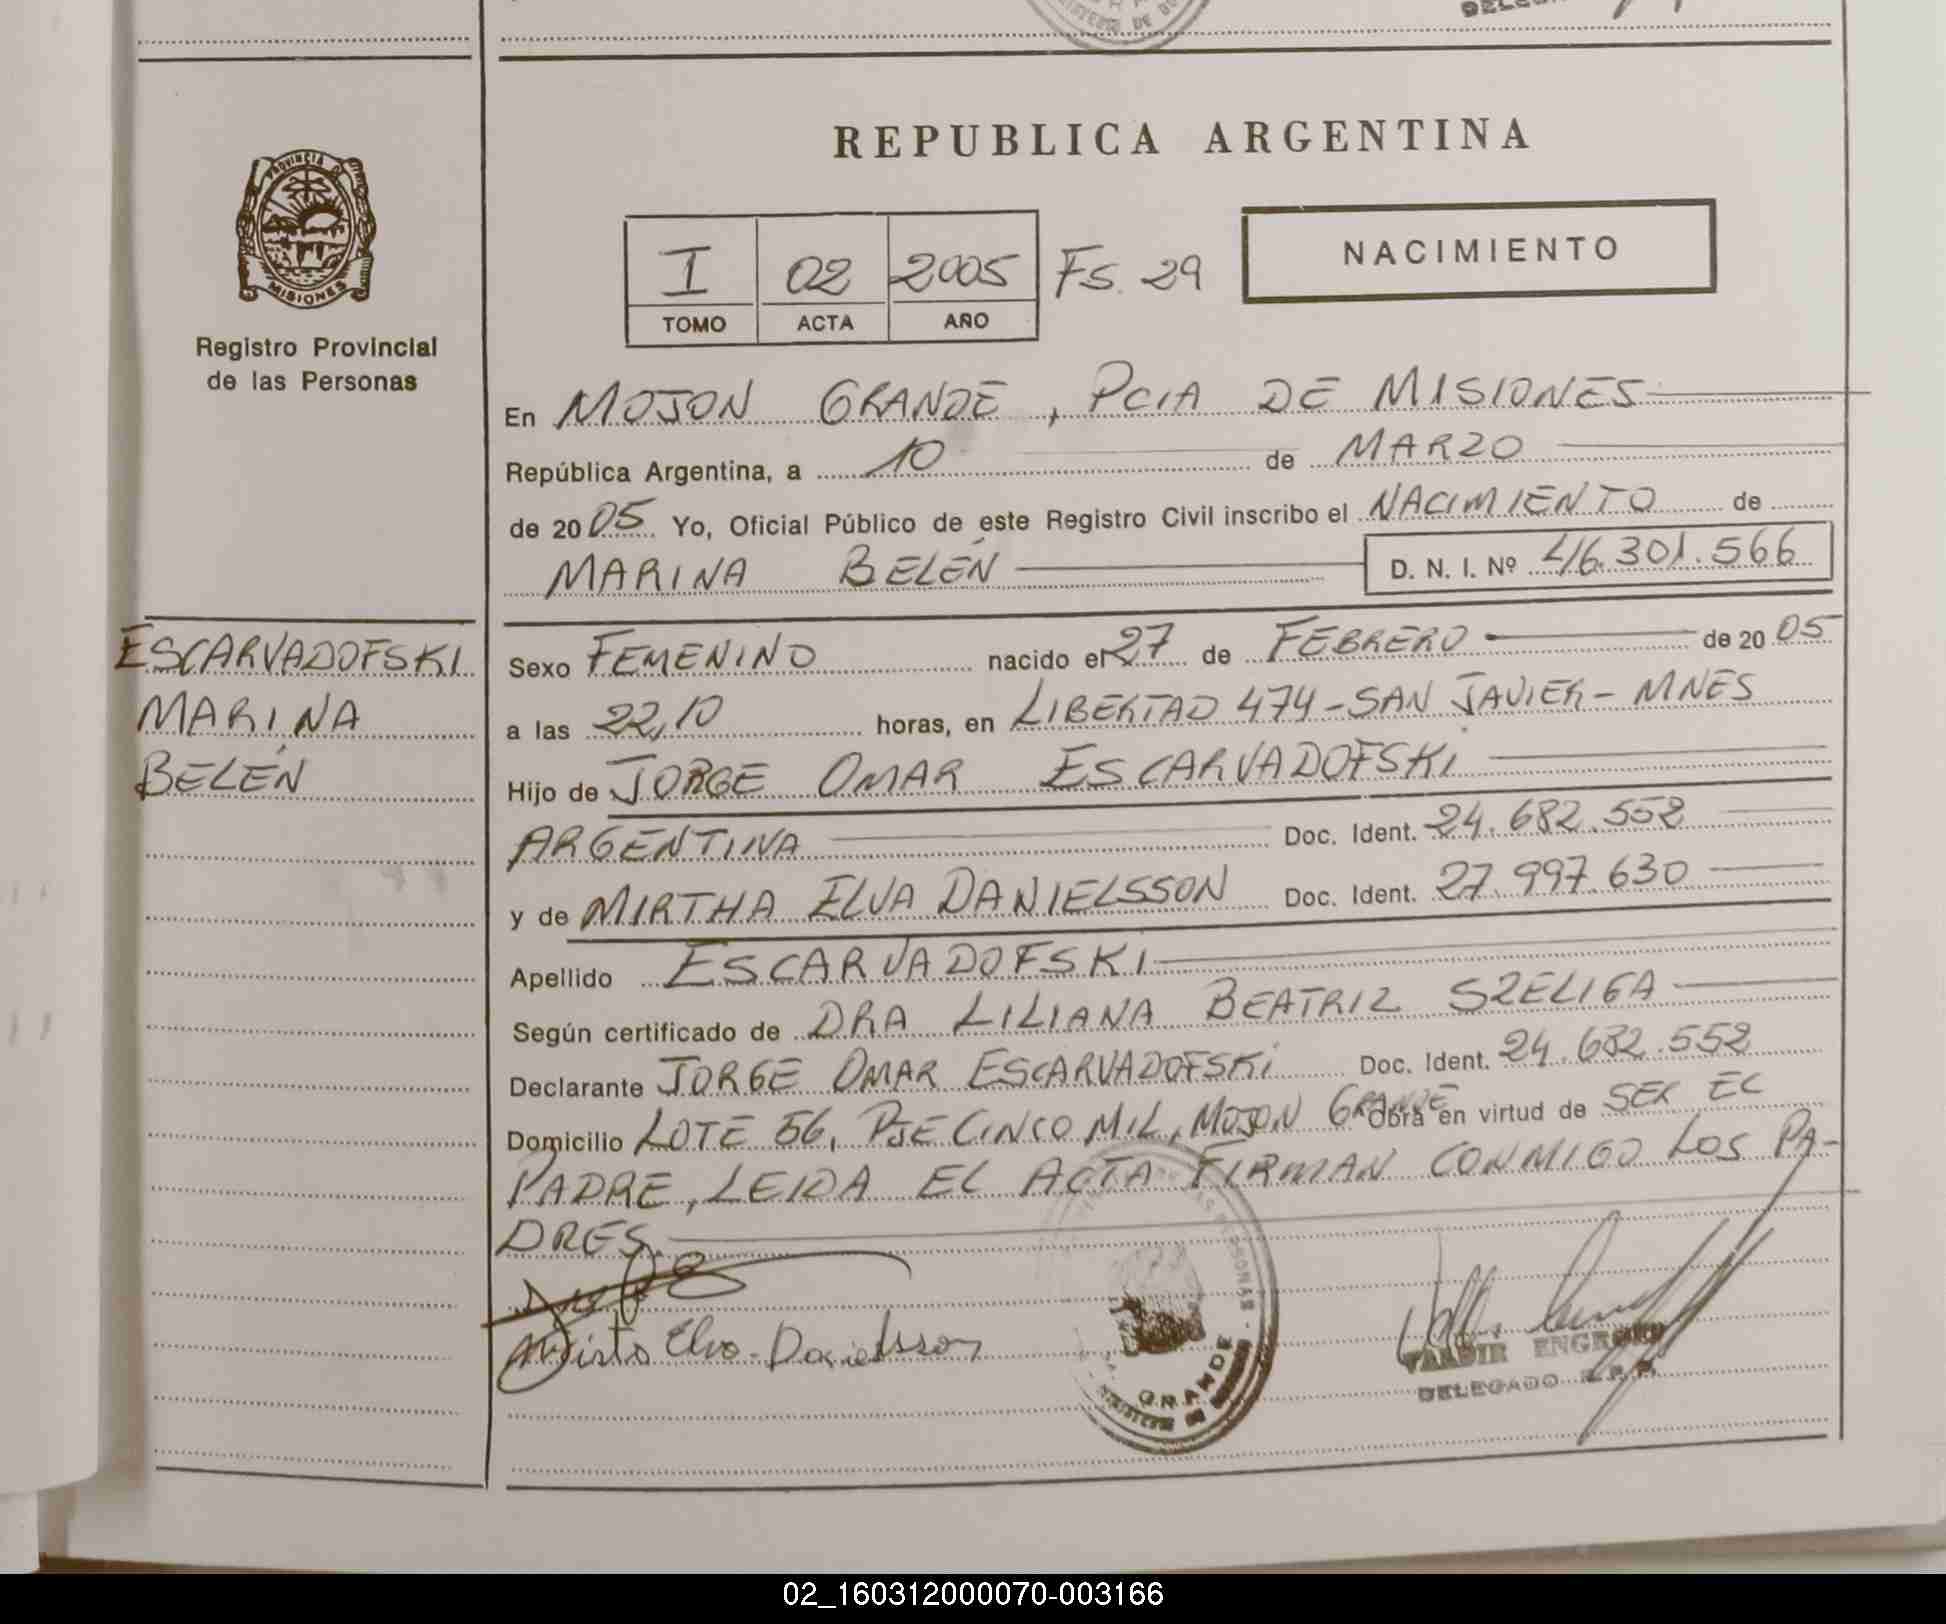 REPUBLICA ARGENTINA
PROVINCIA DE
MISIONES
Registro Provincial
de las Personas
I 02 2005 Fs. 29
TOMO ACTA AÑO
NACIMIENTO
En MOJON GRANDE, PCIA DE MISIONES
República Argentina, a 10 de MARZO
de 2005 Yo, Oficial Público de este Registro Civil inscribo el NACIMIENTO de
MARINA BELÉN D. N. I. Nº 46.301.566
ESCARVADOFSKI
MARINA
BELÉN
Sexo FEMENINO nacido el 27 de FEBRERO de 2005
a las 22,10 horas, en LIBERTAD 474-SAN JAVIER-MNES
Hijo de JORGE OMAR ESCARVADOFSKI
ARGENTINA Doc. Ident. 24.682.552
y de MIRTHA ELVA DANIELSSON Doc. Ident. 27.997.630
Apellido ESCARVADOFSKI
Según certificado de DRA LILIANA BEATRIZ SZELIGA
Declarante JORGE OMAR ESCARVADOFSKI Doc. Ident. 24.682.552
Domicilio LOTE 56, PJE CINCO MIL, MOJON GRANDE Obra en virtud de SER EL
PADRE, LEIDA EL ACTA FIRMAN CONMIGO LOS PA-
DRES.
Mirta Elva Danielsson
GRANDE
DELEGADO R.P.P.
02_160312000070-003166